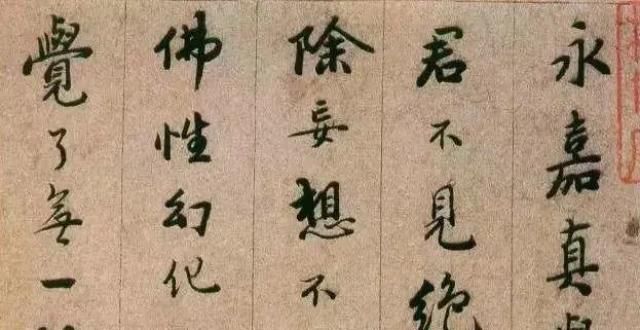 永嘉真
君不見絕
除妄想不
佛性幻化
覺了無一